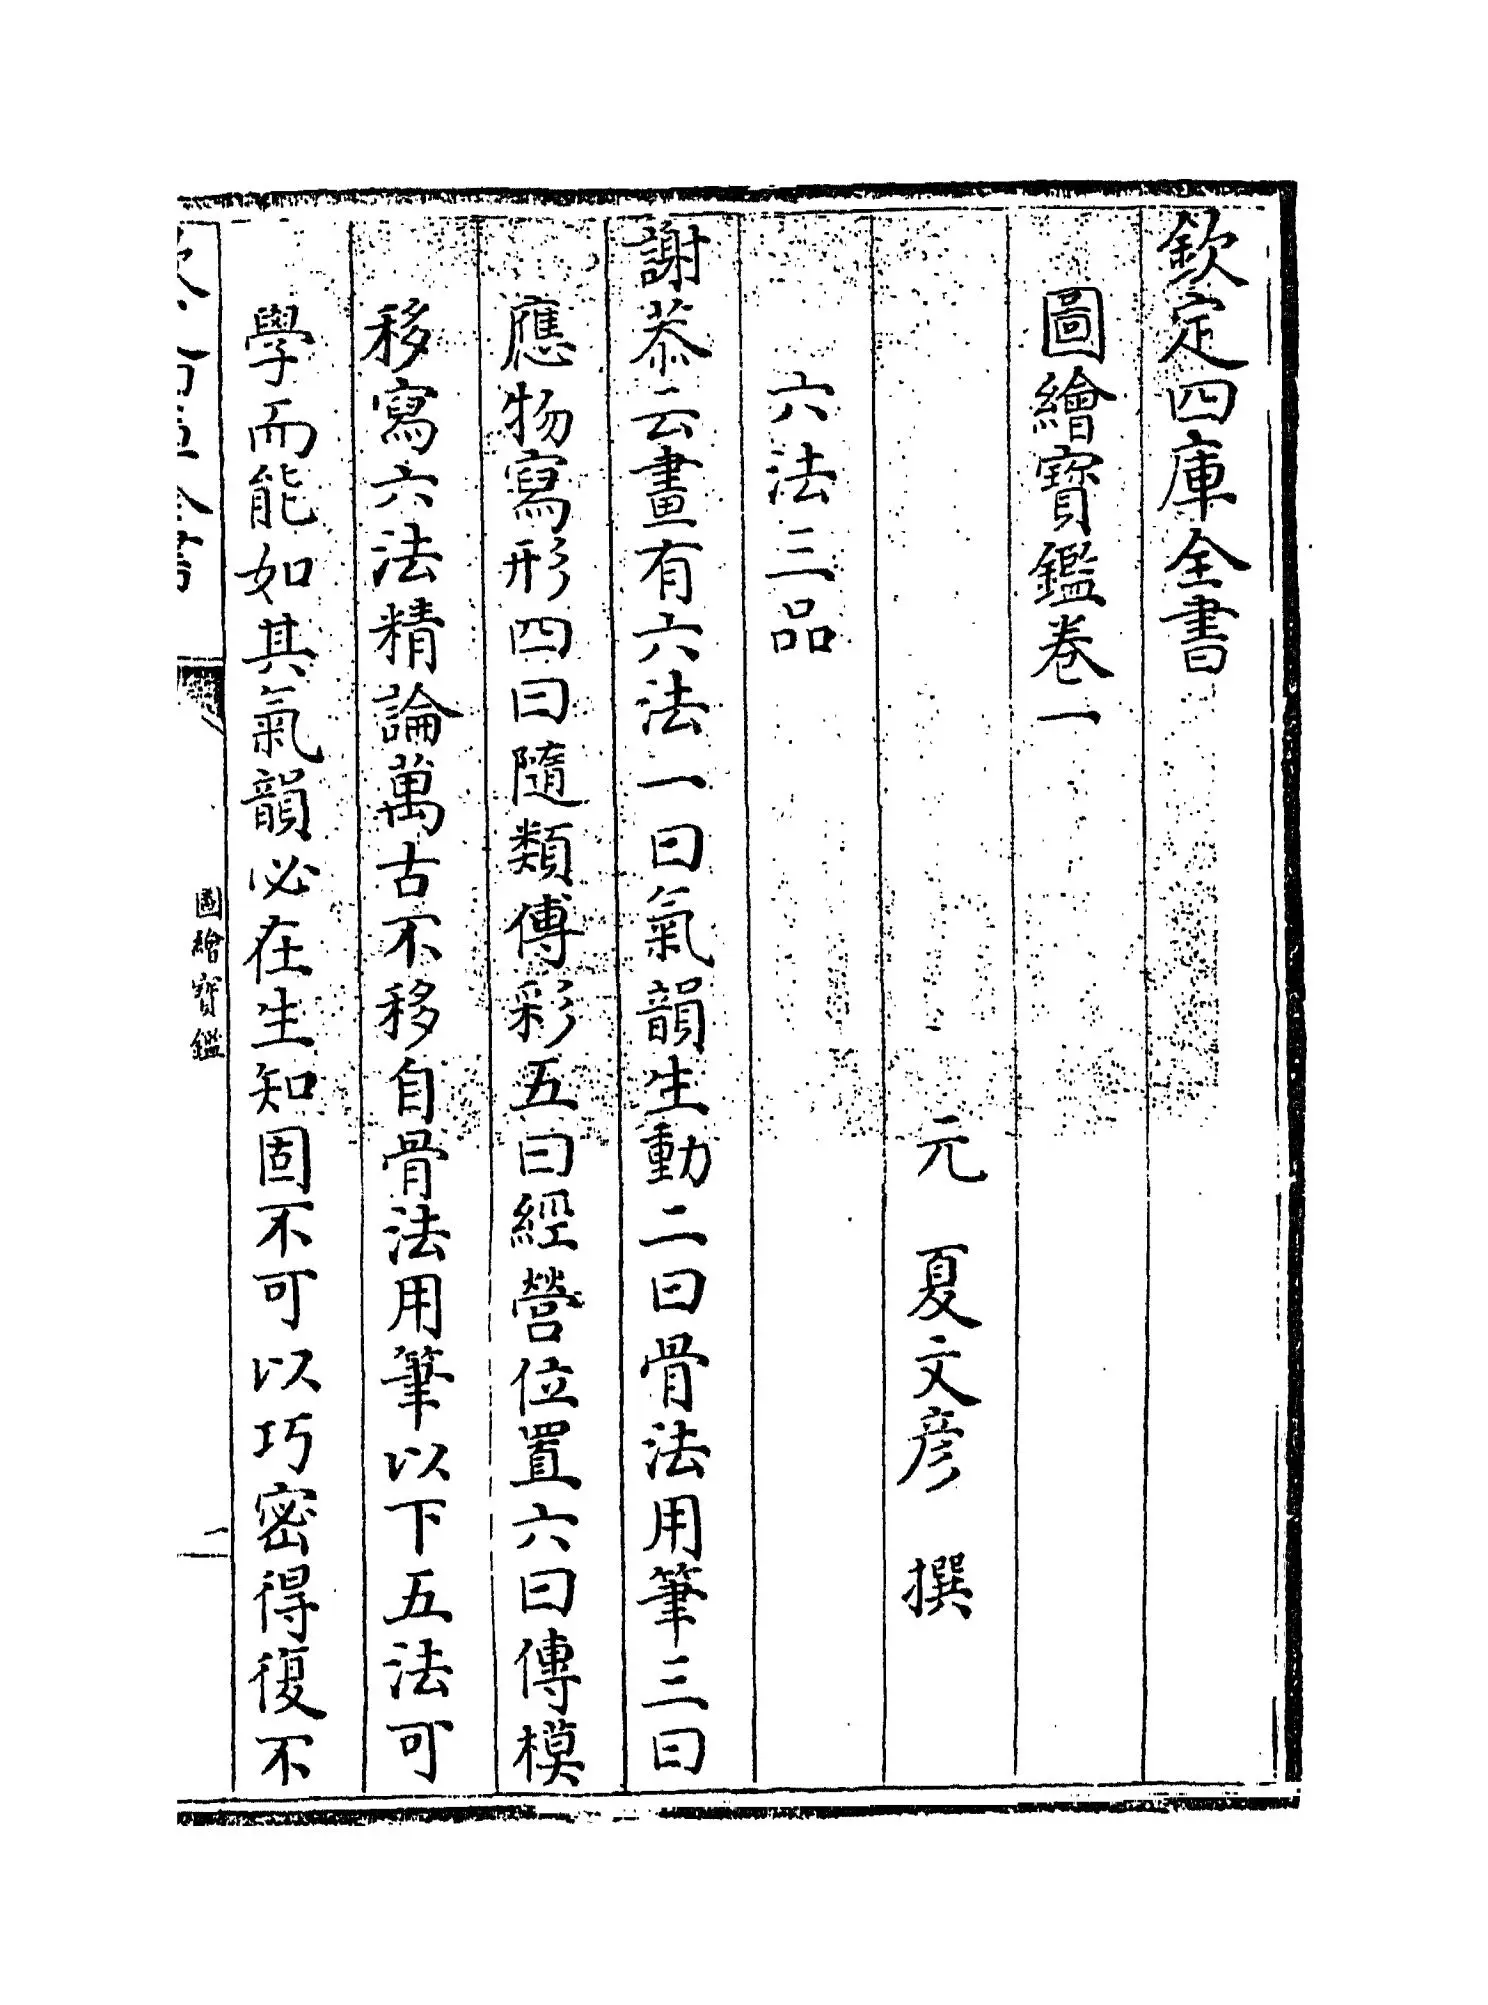 欽定四庫全書
圖繪寶鑑卷一
元 夏文彦 撰
六法三品
謝㳟云畫有六法一曰氣韻生動二曰骨法用筆三曰
應物寫形四曰隨類傅彩五曰經營位置六曰傳模
移寫六法精論萬古不移自骨法用筆以下五法可
學而能如其氣韻必在生知固不可以巧密得復不
圖繪寶鑑
一